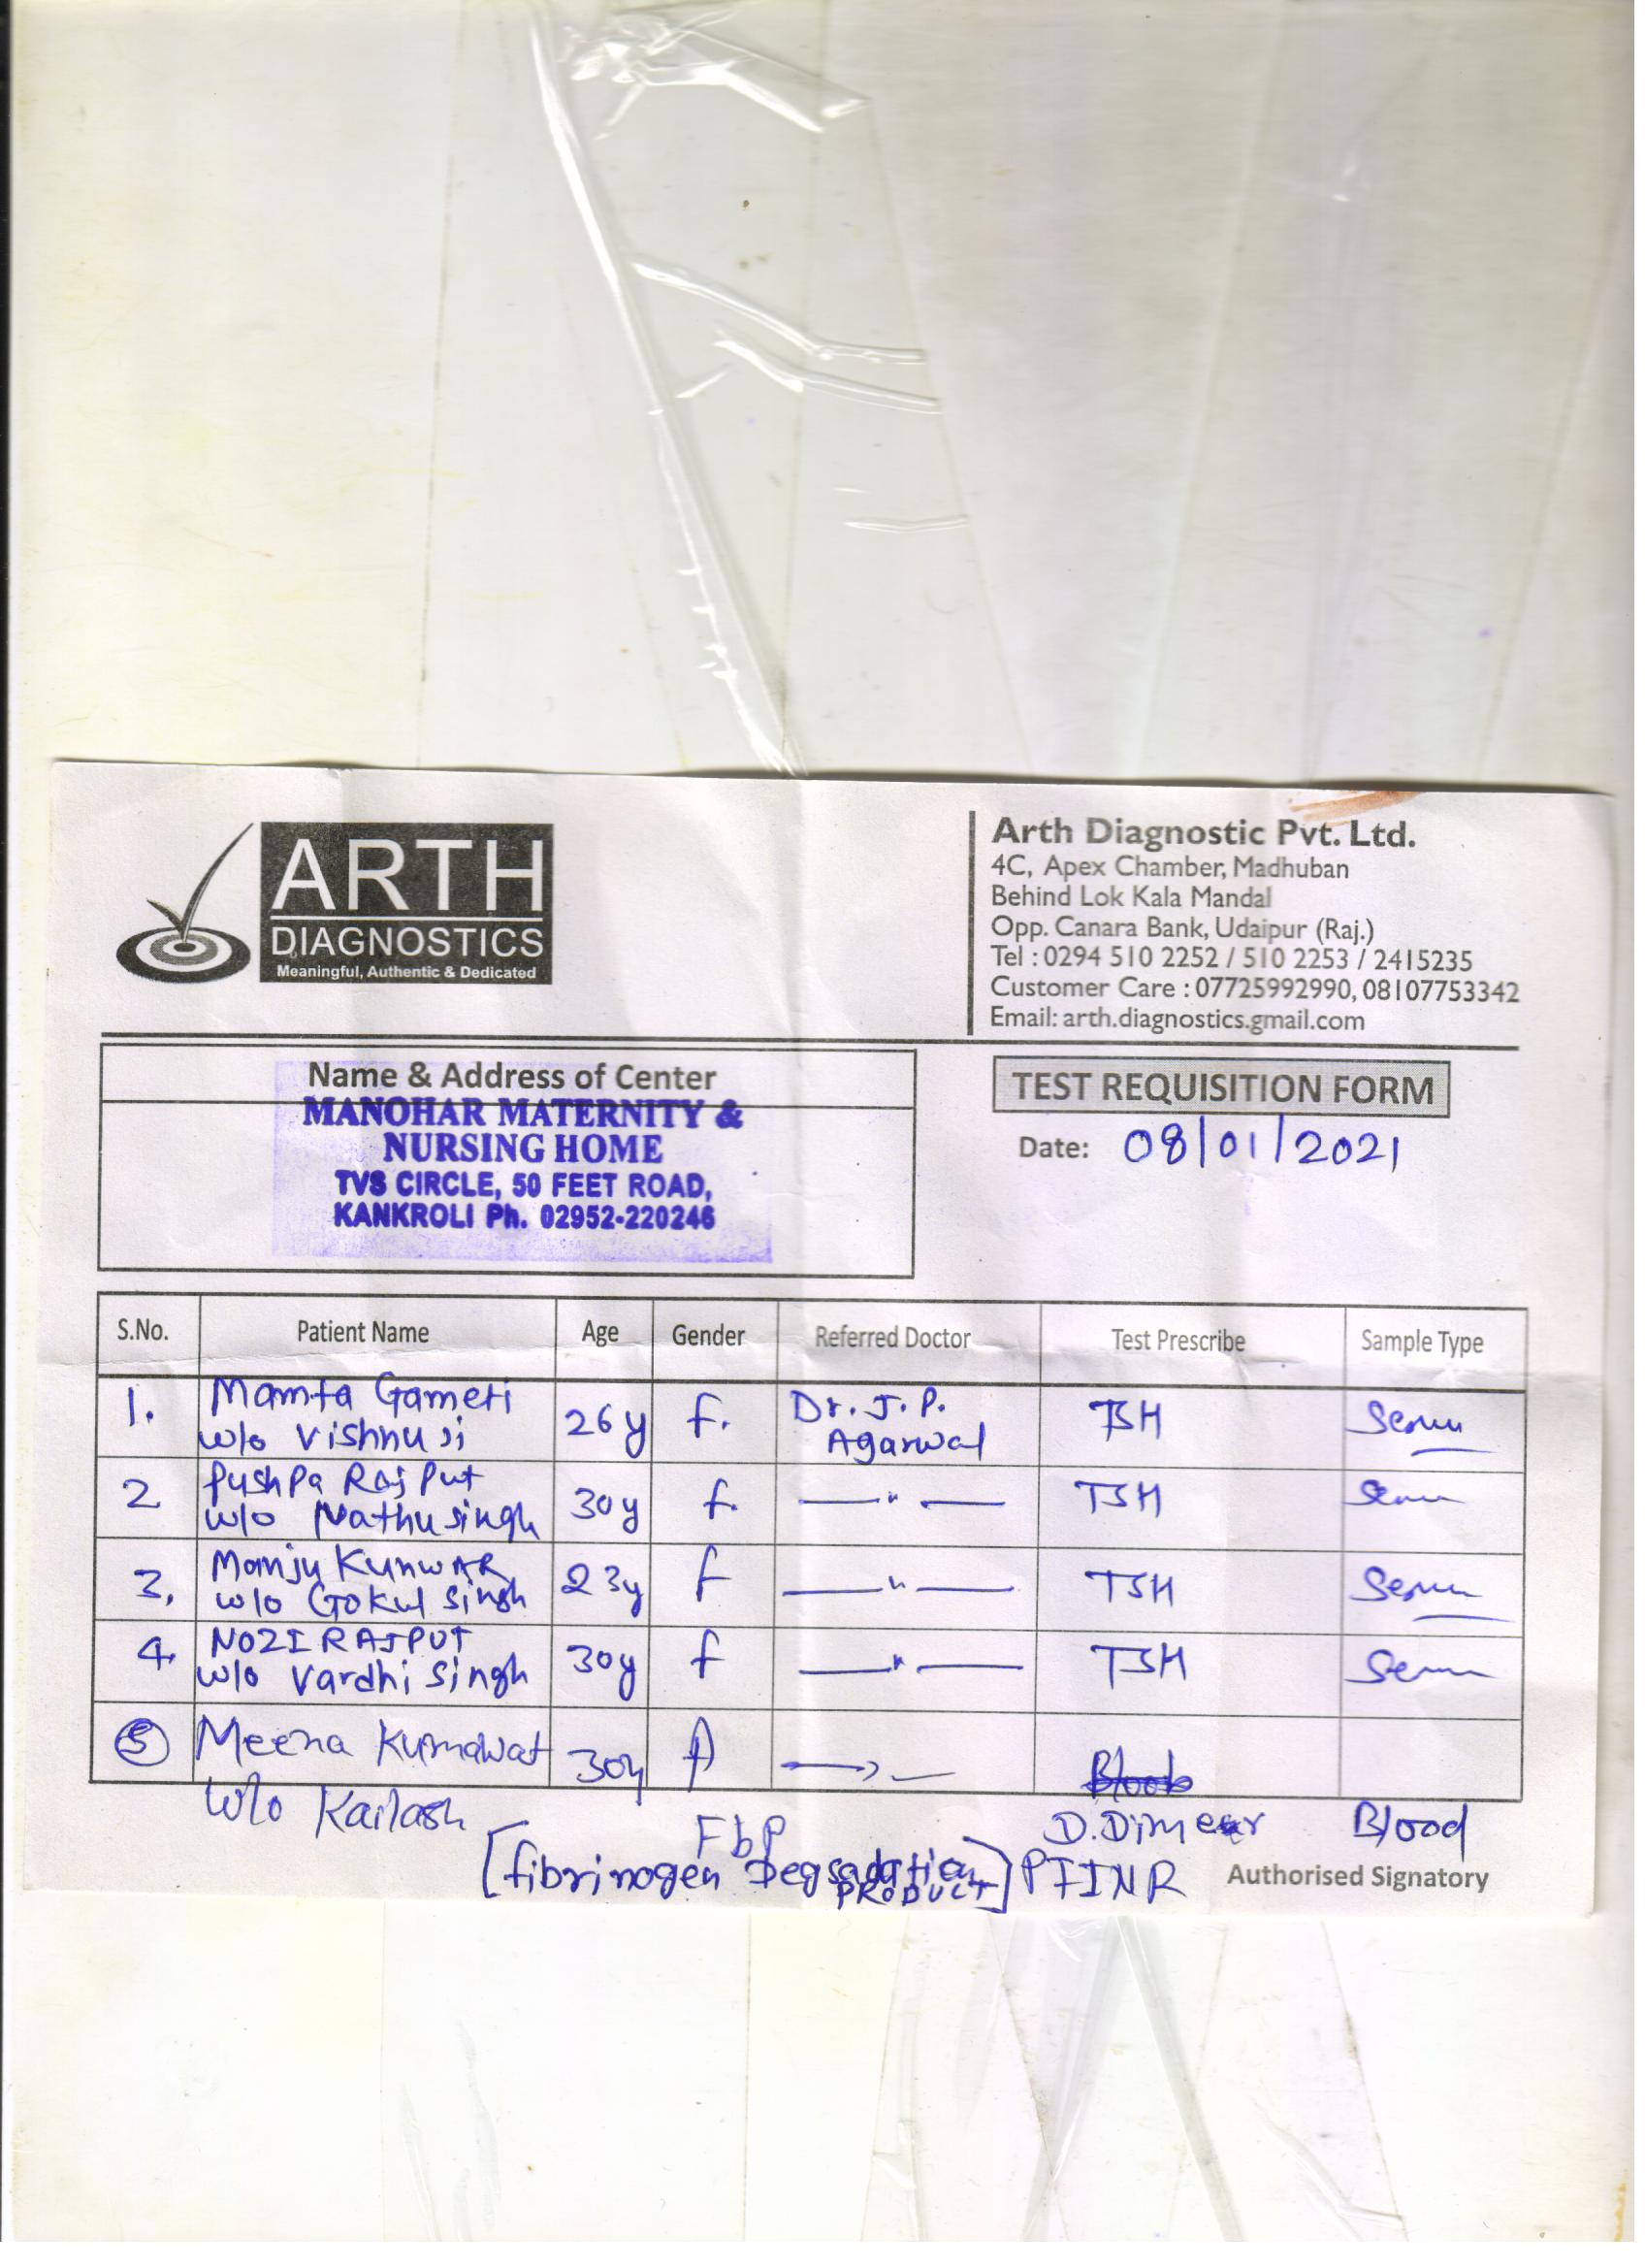 ARTH
DIAGNOSTICS
Meaningful, Authentic & Dedicated
Arth Diagnostic Pvt. Ltd.
4C, Apex Chamber, Madhuban
Behind Lok Kala Mandal
Opp. Canara Bank, Udaipur (Raj.)
Tel : 0294 510 2252 / 510 2253 / 2415235
Customer Care : 07725992990, 08107753342
Email: arth.diagnostics.gmail.com
Name & Address of Center
MANOHAR MATERNITY &
NURSING HOME
TVS CIRCLE, 50 FEET ROAD,
KANKROLI Ph. 02952-220246
TEST REQUISITION FORM
Date: 08/01/2021
S.No. Patient Name Age Gender Referred Doctor Test Prescribe Sample Type
1. Mamta Gameti 26 y F. Dr. J. P. TSH Serum
w/o Vishnu Ji Agarwal
2 Pushpa Rajput 30 y f. —"— TSH Serum
w/o Nathu singh
3. Manju KunwAR 23y F —"— TSH Serum
w/o Gokul Singh
4. NOZI RAJPUT 30y f —"— TSH Serum
w/o Vardhi Singh
5 Meena Kumawat 30y —"—
w/o Kailash D.Dimer Blood
FbP
[fibrinogen Degradation PRODUCT] PTINR
Authorised Signatory